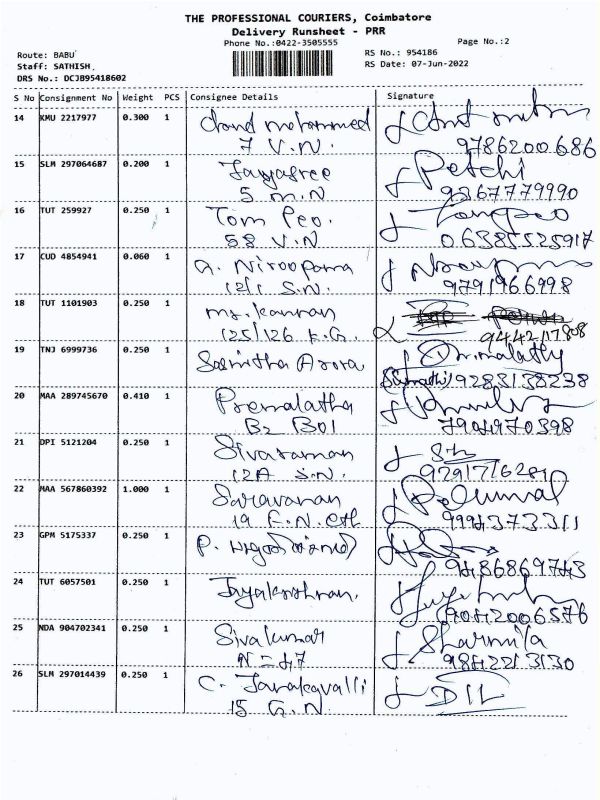 THE PROFESSIONAL COURIERS, Coimbatore
Delivery Runsheet - PRR
Phone No.:0422-3505555
Page No.:2
Route: BABU
Staff: SATHISH
DRS No.: DCJB95418602
RS No.: 954186
RS Date: 07-Jun-2022
S No Consignment No Weight PCS Consignee Details Signature
14 KMU 2217977 0.300 1 mohammed
7 V.N. 9786200686
15 SLM 297064687 0.200 1 Jayasree Petchi
5 M.N 9367779990
16 TUT 259927 0.250 1 Tom Peo.
58 V.N 06385525917
17 CUD 4854941 0.060 1 Niroopama
12/1 S.N. 9791966998
18 TUT 1101903 0.250 1 Mr. Kannan
125/126 K.G. 9442217808
19 TNJ 6999736 0.250 1 Samitha Arora Dr. malathy
9283138238
20 MAA 289745670 0.410 1 Premalatha
B2 B01 7904970398
21 DPI 5121204 0.250 1 Sivaraman
12A S.N.
22 MAA 567860392 1.000 1 Saravanan Perumal
19 9994373311
23 GPM 5175337 0.250 1 P.
9486869743
24 TUT 6057501 0.250 1 Jayakrishnan.
9042006576
25 NDA 904702341 0.250 1 Sivakumar Sharmila
N-47 9842213130
26 SLM 297014439 0.250 1 C. Janakavalli
15 G.N.